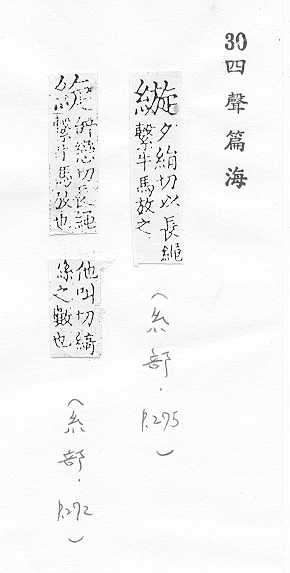 30四聲篇海
縼夕絹切以長繩
繫牛馬放之
（糸部．P.275）
辝戀切長繩
繫牛馬放也
他叫切綺
絲之數也
（糸部．P.272）